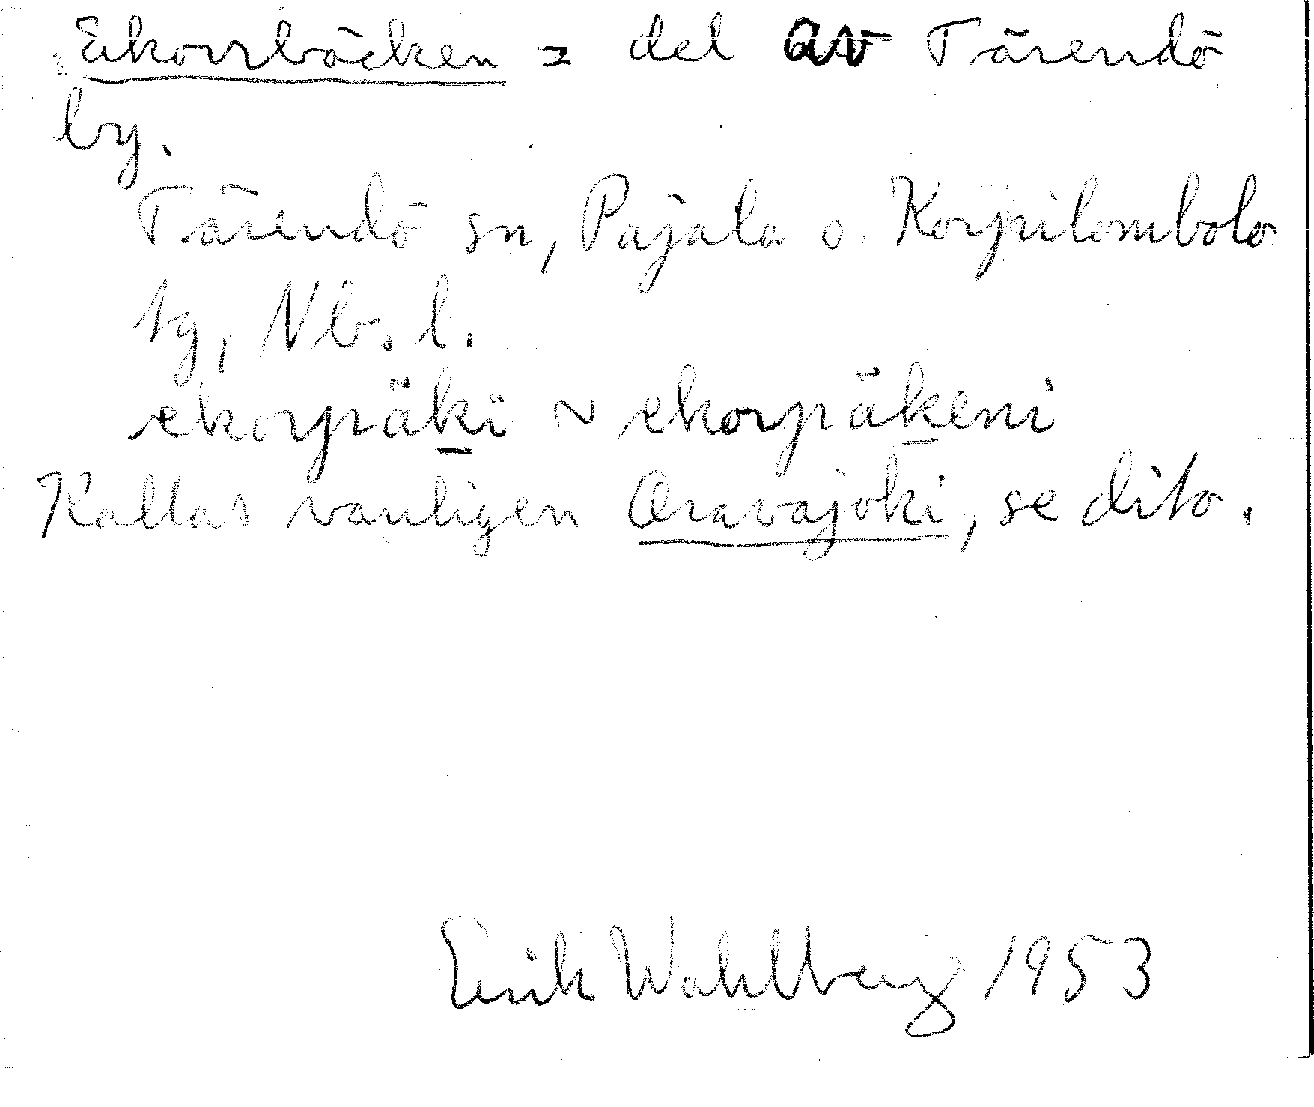 Ekorrbäcken = del av Tärendö
by.
Tärendö sn, Pajala o. Korpilombolo
tg, Nb. l.
ekorpäki ~ ekorpäkeni
Kallas vanligen Oravajoki, se dito.
Erik Wahlberg 1953